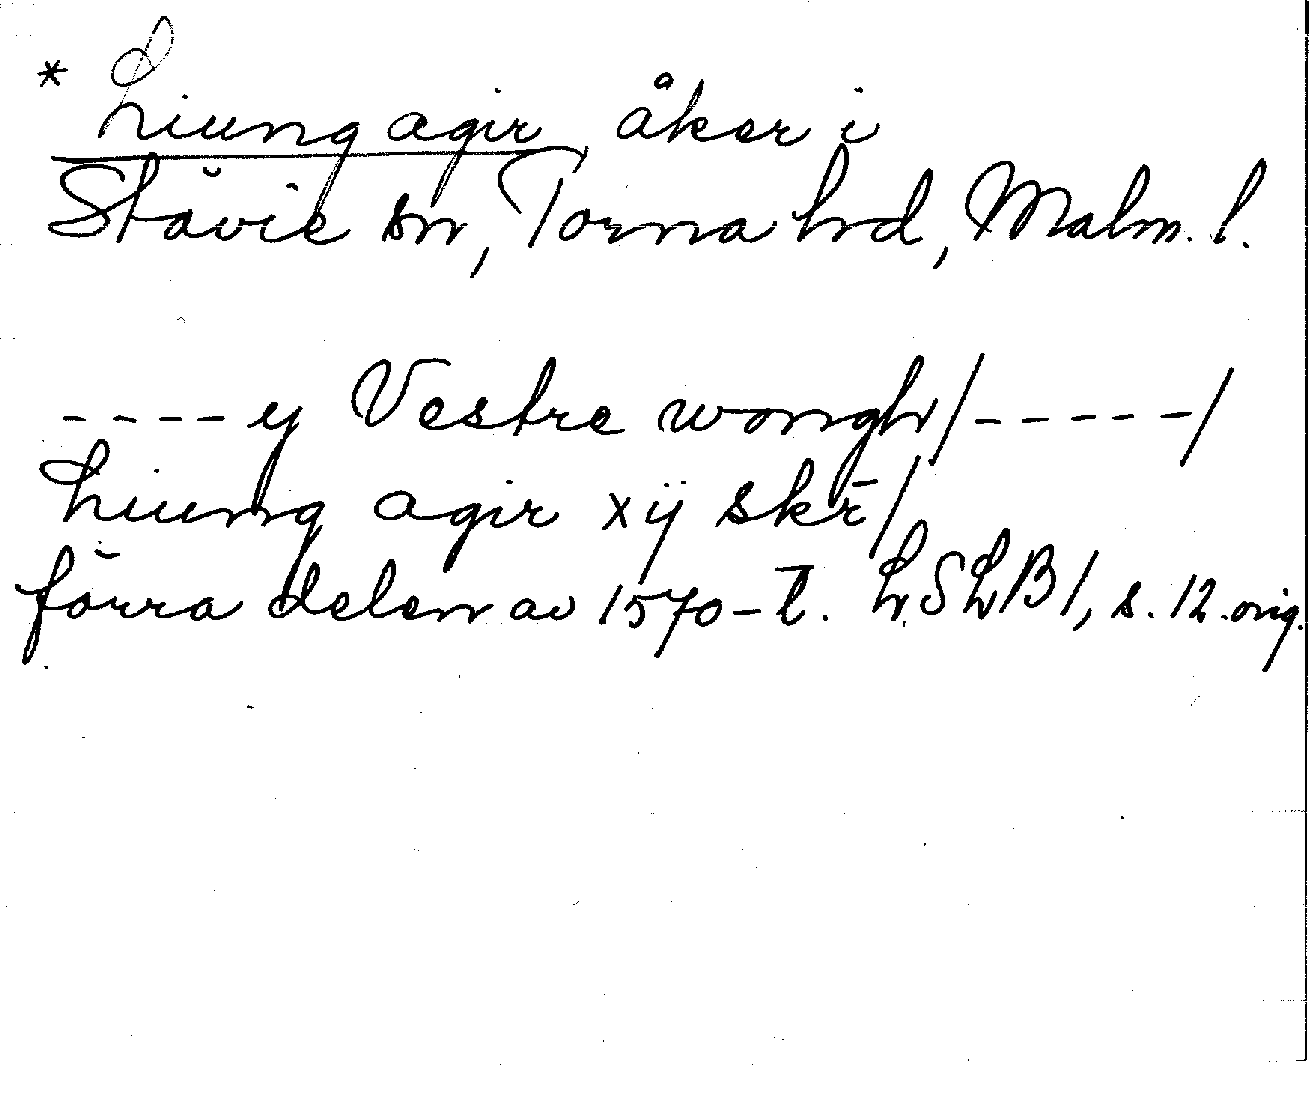 * Liung agir, åker i
Stävie sn, Torna hrd, Malm. l.
----y Vestre wongh/-----/
Liung agir xÿ skr̄/
förra delen av 1570-t. LSLB1, s. 12. orig.